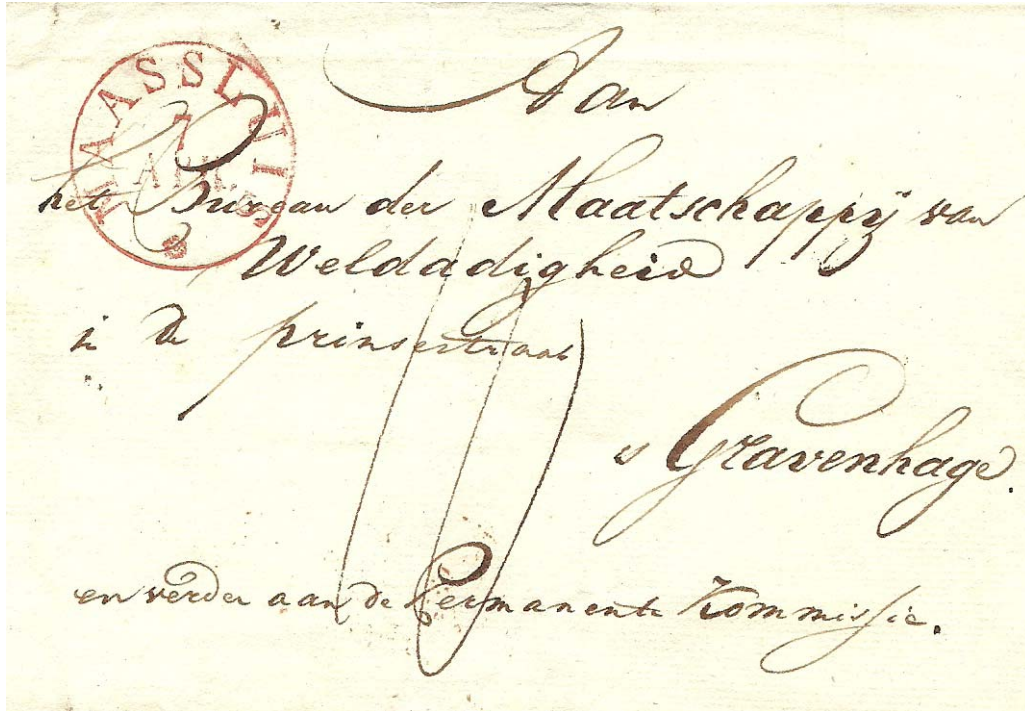 MAASSLUIS
7
APR.
Aan
het Bureau der Maatschappij van
Weldadigheid
in de prinsestraat
s Gravenhage.
en verder aan de Permanente Kommissie.